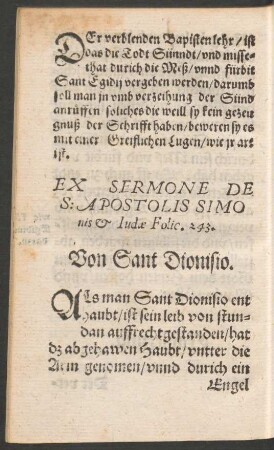 DEr verblenden Bapisten lehr / ist
das die Todt Sünndt / vnd misse-
that durich die Meß / vnnd fürbit
Sant Egidij vergeben werden / darumb
soll man jn vmb verzeihung der Sünd
anrüffen soliches die weill sy kein gezeu
gnuß der Schrifft haben / beweren sy es
mit einer Greiflichen Lugen / wie jr art
ist.
EX SERMONE DE
S: APOSTOLIS SIMO
nis & Iudæ Folic. 243.
Von Sant Dionisio.
ALs man Sant Dionisio ent
haubt / ist sein leib von stun-
dan auffrecht gestanden / hat
dz abgehawen Haubt / vntter die
Arm genomen / vnnd durich ein
Engel